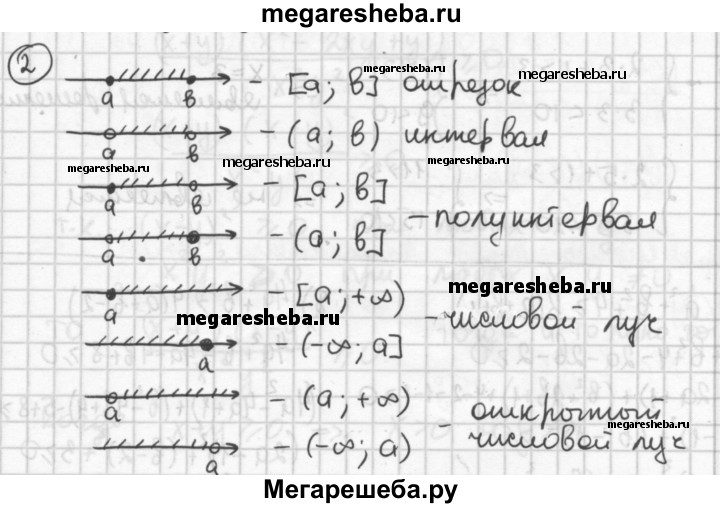 megaresheba.ru
2
a в - [a; в] отрезок
megaresheba.ru
a в - (a; в) интервал
megaresheba.ru megaresheba.ru megaresheba.ru
a в - [a; в]
- полуинтервал
a в - (a; в]
a - [a; +∞)
megaresheba.ru
- числовой луч
megaresheba.ru
a - (-∞; a]
a - (a; +∞)
- открытый
числовой луч
a - (-∞; a)
Мегарешеба.ру